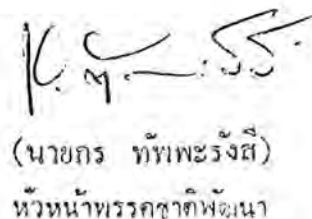 (นายกร ทัพพะรังสี)
หัวหน้าพรรคชาติพัฒนา